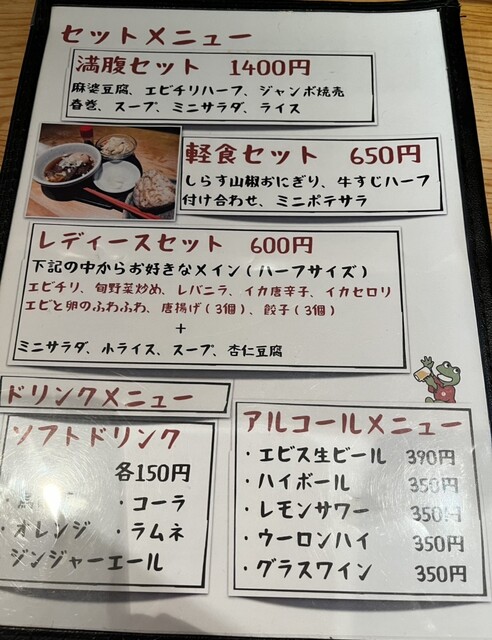 セットメニュー
満腹セット 1400円
麻婆豆腐、エビチリハーフ、ジャンボ焼売
春巻、スープ、ミニサラダ、ライス
軽食セット 650円
しらす山椒おにぎり、牛すじハーフ
付け合わせ、ミニポテサラ
レディースセット 600円
下記の中からお好きなメイン(ハーフサイズ)
エビチリ、旬野菜炒め、レバニラ、イカ唐辛子、イカセロリ
エビと卵のふわふわ、唐揚げ(3個)、餃子(3個)
+
ミニサラダ、小ライス、スープ、杏仁豆腐
ドリンクメニュー
ソフトドリンク
各150円
・コーラ
・オレンジ ・ラムネ
ジンジャーエール
アルコールメニュー
・エビス生ビール 390円
・ハイボール 350円
・レモンサワー 350円
・ウーロンハイ 350円
・グラスワイン 350円